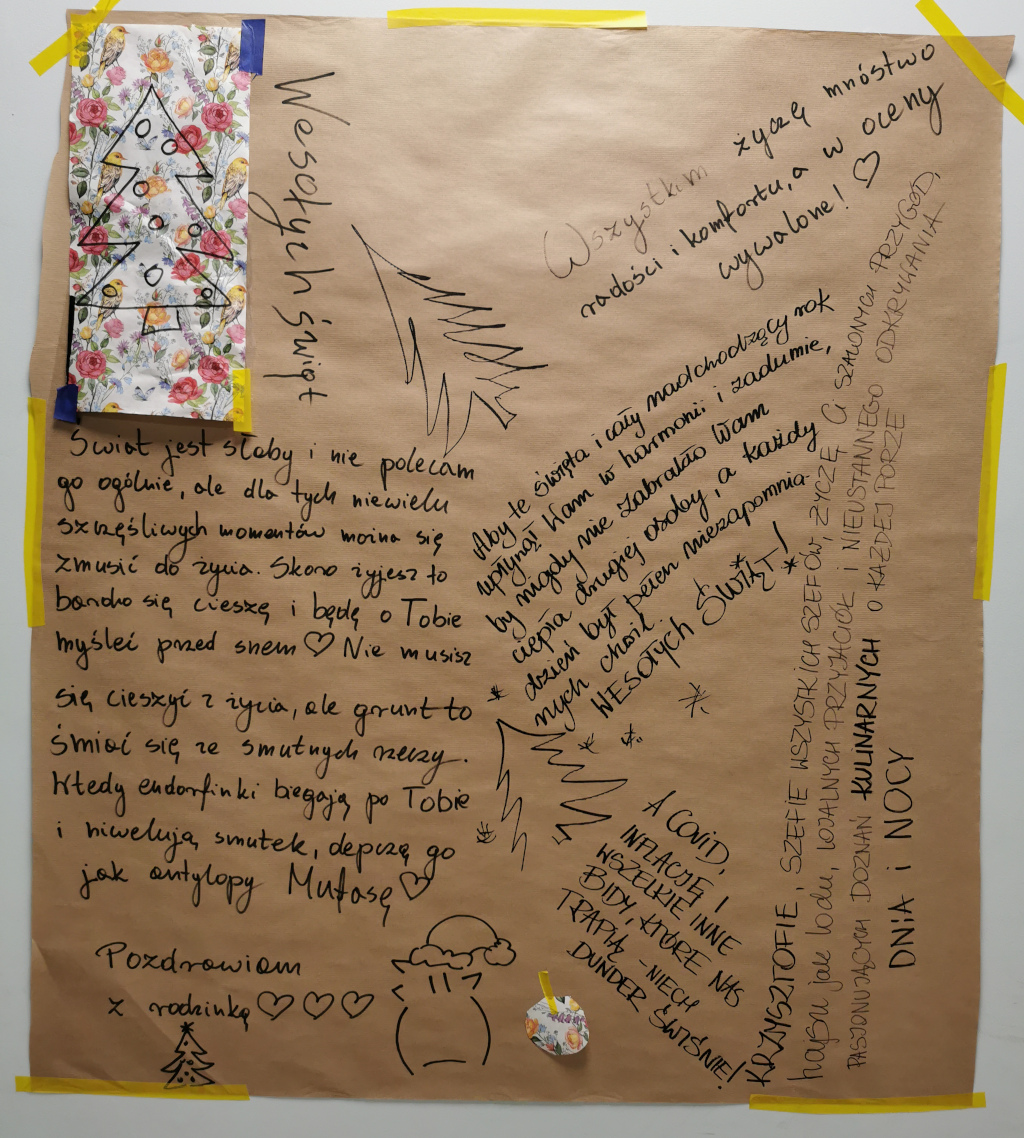 Wesołych świąt
Świat jest słaby i nie polecam
go ogólnie, ale dla tych niewielu
szczęśliwych momentów można się
zmusić do życia. Skoro żyjesz to
bardzo się cieszę i będę o Tobie
myśleć przed snem ♡ Nie musisz
się cieszyć z życia, ale grunt to
śmiać się ze smutnych rzeczy.
Wtedy endorfinki biegają po Tobie
i niwelują smutek, depczą go
jak antylopy Mufasę ♡
Pozdrawiam
z rodzinką ♡♡♡
Wszystkim życzę mnóstwo
radości i komfortu, a w oceny
wywalone! ♡
Aby te święta i cały nadchodzący rok
upłynął Wam w harmonii i zadumie,
by nigdy nie zabrakło Wam
ciepła drugiej osoby, a każdy
dzień był pełen niezapomnia-
nych chwil.
WESOŁYCH ŚWIĄT!
A COVID,
INFLACJĘ I
WSZELKIE INNE
BIDY, KTÓRE NAS
TRAPIĄ - NIECH
DUNDER ŚWIŚNIE!
KRZYSZTOFIE, SZEFIE WSZYSTKICH SZEFÓW, ŻYCZĘ CI SZALONYCH PRZYGÓD,
hajsu jak lodu, LOJALNYCH PRZYJACIÓŁ i NIEUSTANNEGO ODKRYWANIA
PASJONUJĄCYCH DOZNAŃ KULINARNYCH O KAŻDEJ PORZE
DNiA i NOCY